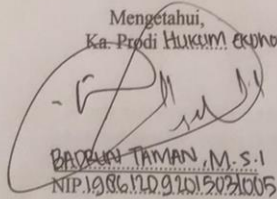 Mengetahui,
Ka. Prodi HUKUM EKONO
BADRUN TAMAN, M.S.I
NIP.198612092015031005